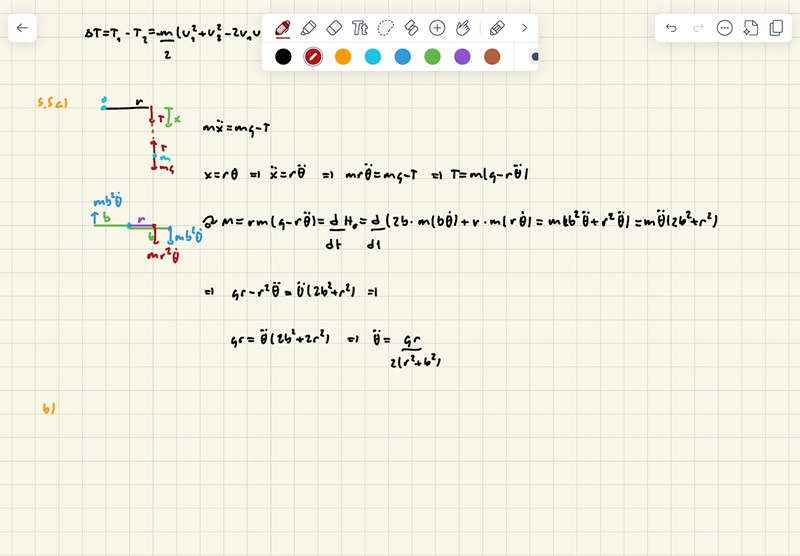 ΔT=T₁-T₂=m/2(v₁²+v₂²-2v₁v
Tt
5.5a)
r
T x
T
m
mg
mẍ=mg-T
x=rθ => ẍ=rθ̈ => mrθ̈=mg-T => T=m(g-rθ̈)
mb²θ̇
b r
b mb²θ̇
mr²θ̇
M=rm(g-rθ̈)=d/dt H₀=d/dt(2b·m(bθ̇)+r·m(rθ̇)=m(2b²θ̈+r²θ̈)=mθ̈(2b²+r²)
=> gr-r²θ̈=θ̈(2b²+r²) =>
gr=θ̈(2b²+2r²) => θ̈=gr/2(r²+b²)
b)